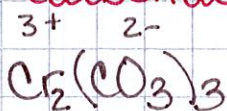 3+ 2-
Cr₂(CO₃)₃